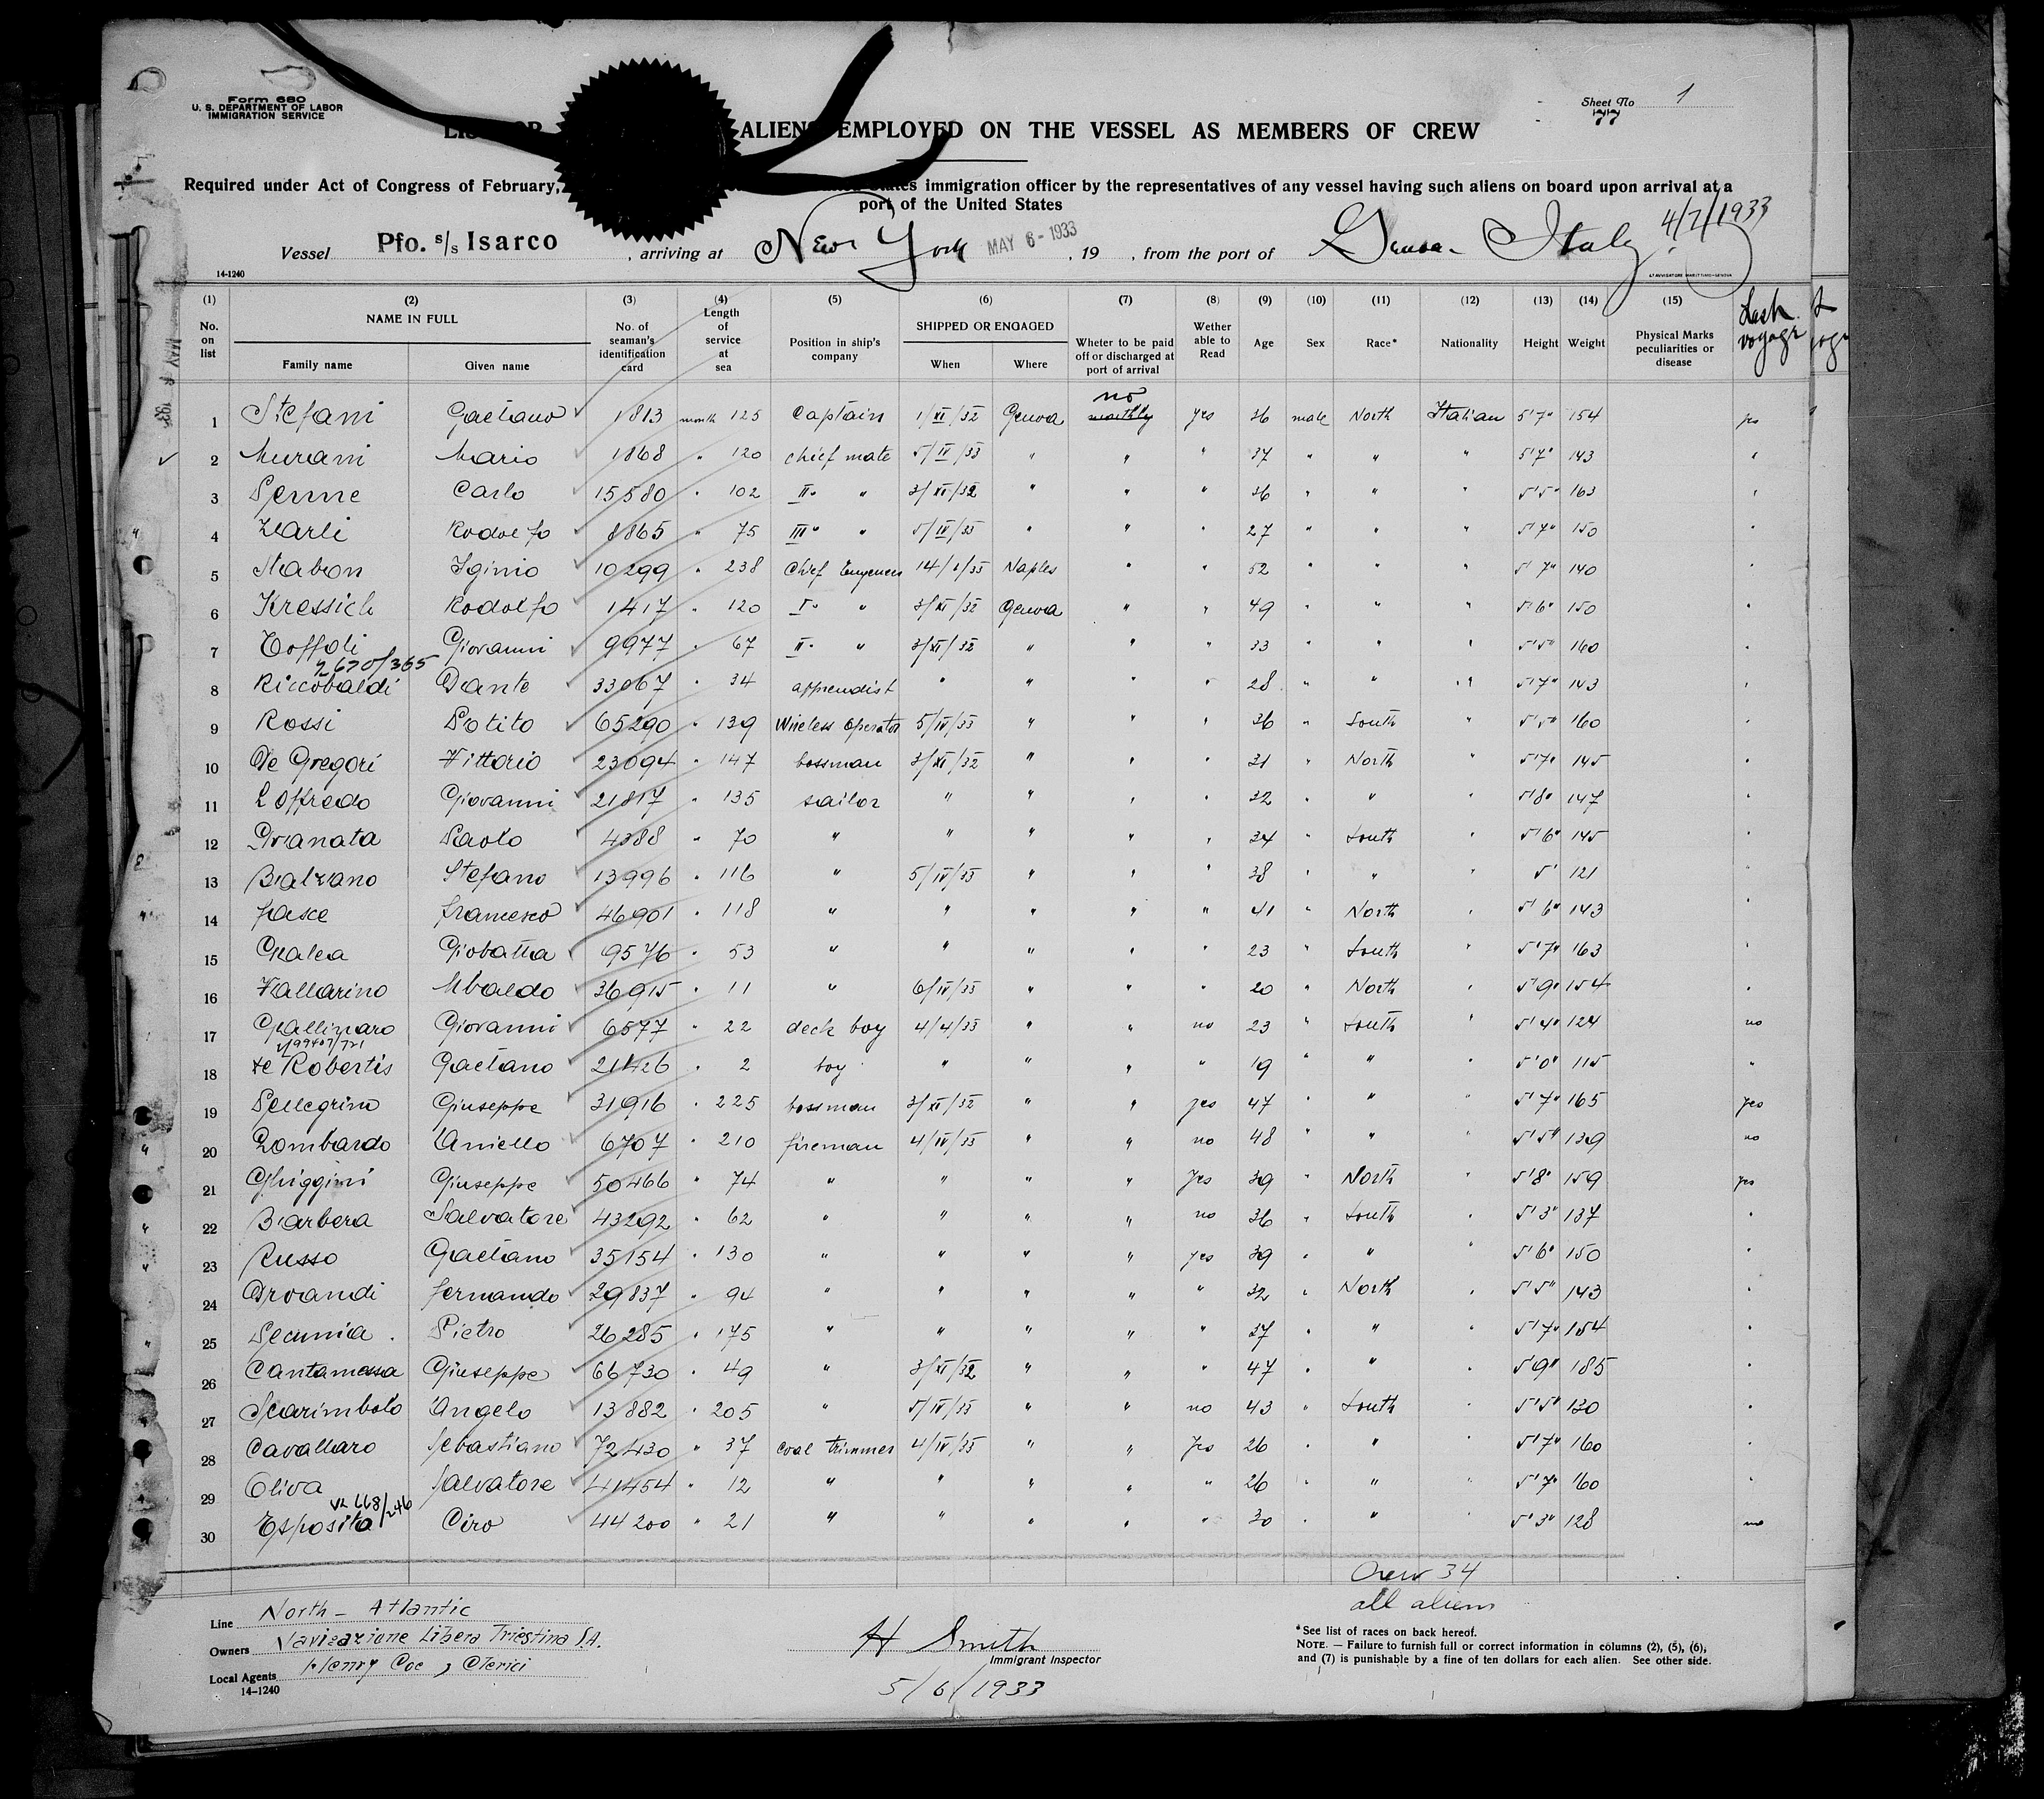 Form 680
U. S. DEPARTMENT OF LABOR
IMMIGRATION SERVICE
Sheet No 1
77
ALIENS EMPLOYED ON THE VESSEL AS MEMBERS OF CREW
Required under Act of Congress of February, States immigration officer by the representatives of any vessel having such aliens on board upon arrival at a
port of the United States
Vessel Pfo. s/s Isarco , arriving at New York MAY 6 - 1933 , 19 , from the port of Genoa - Italy 4/7/1933
14-1240
(1) (2) (3) (4) (5) (6) (7) (8) (9) (10) (11) (12) (13) (14) (15)
No. on list NAME IN FULL Family name Given name No. of seaman's identification card Length of service at sea Position in ship's company SHIPPED OR ENGAGED When Where Wheter to be paid off or discharged at port of arrival Wether able to Read Age Sex Race* Nationality Height Weight Physical Marks peculiarities or disease Last voyage
1 Stefani Gaetano 1813 month 125 Captain 1/XI/32 Genova no monthly yes 36 male North Italian 5'7" 154 yes
2 Murani Mario 1868 " 120 chief mate 5/IV/33 " " " 37 " " " 5'7" 143 "
3 Penne Carlo 15580 " 102 II° " 3/XI/32 " " " 36 " " " 5'5" 163 "
4 Zarli Rodolfo 8865 " 75 III° " 5/IV/33 " " " 27 " " " 5'7" 150 "
5 Stabon Iginio 10299 " 238 Chief Engeneer 14/1/33 Naples " " 52 " " " 5'7" 140 "
6 Kressich Rodolfo 1417 " 120 I° " 3/XI/32 Genova " " 49 " " " 5'6" 150 "
7 Toffoli Giovanni 9977 " 67 II° " 3/XI/32 " " " 33 " " " 5'5" 160 "
2670/365
8 Riccobaldi Dante 33067 " 34 apprendist " " " " 28 " " " 5'7" 143 "
9 Rossi Potito 65290 " 139 Wireless Operator 5/IV/33 " " " 36 " South " 5'5" 160 "
10 De Gregori Vittorio 23094 " 147 bossman 3/XI/32 " " " 31 " North " 5'7" 145 "
11 Loffredo Giovanni 21817 " 135 sailor " " " " 32 " " " 5'8" 147 "
12 Granata Paolo 4388 " 70 " " " " " 34 " South " 5'6" 145 "
13 Balzano Stefano 13996 " 116 " 5/IV/33 " " " 38 " " " 5' 121 "
14 Jasce Francesco 46901 " 118 " " " " " 41 " North " 5'6" 143 "
15 Galea Giobatta 9576 " 53 " " " " " 23 " South " 5'7" 163 "
16 Vallarino Ubaldo 36915 " 11 " 6/IV/33 " " " 20 " North " 5'9" 154 "
17 Gallinaro Giovanni 6577 " 22 deck boy 4/4/33 " " no 23 " South " 5'4" 124 no
99407/721
18 de Robertis Gaetano 21426 " 2 boy " " " " 19 " " " 5'0" 115 "
19 Pellegrino Giuseppe 31916 " 225 bossman 3/XI/32 " " yes 47 " " " 5'7" 165 yes
20 Lombardo Aniello 6707 " 210 fireman 4/IV/33 " " no 48 " " " 5'5" 139 no
21 Ghiggini Giuseppe 50466 " 74 " " " " Yes 39 " North " 5'8" 159 yes
22 Barbera Salvatore 43292 " 62 " " " " no 36 " South " 5'3" 137 "
23 Russo Gaetano 35154 " 130 " " " " yes 39 " " " 5'6" 150 "
24 Orvandi Fernando 29837 " 94 " " " " " 32 " North " 5'5" 143 "
25 Pecunia Pietro 26285 " 175 " " " " " 37 " " " 5'7" 154 "
26 Cantamessa Giuseppe 66730 " 49 " 3/XI/32 " " " 47 " " " 5'9" 185 "
27 Scarimbolo Angelo 13882 " 205 " 5/IV/33 " " no 43 " South " 5'5" 130 "
28 Cavallaro Sebastiano 72430 " 37 coal trimmer 4/IV/33 " " Yes 26 " " " 5'7" 160 "
29 Oliva Salvatore 41454 " 12 " " " " " 26 " " " 5'7" 160 "
668/246
30 Esposito Ciro 44200 " 21 " " " " " 30 " " " 5'3" 128 no
Crew 34
all aliens
Line North - Atlantic
Owners Navigazione Libera Triestina S.A.
Local Agents Henry Coe, Clerici
14-1240
H Smith
Immigrant Inspector
5/6/1933
*See list of races on back hereof.
NOTE. — Failure to furnish full or correct information in columns (2), (5), (6),
and (7) is punishable by a fine of ten dollars for each alien. See other side.